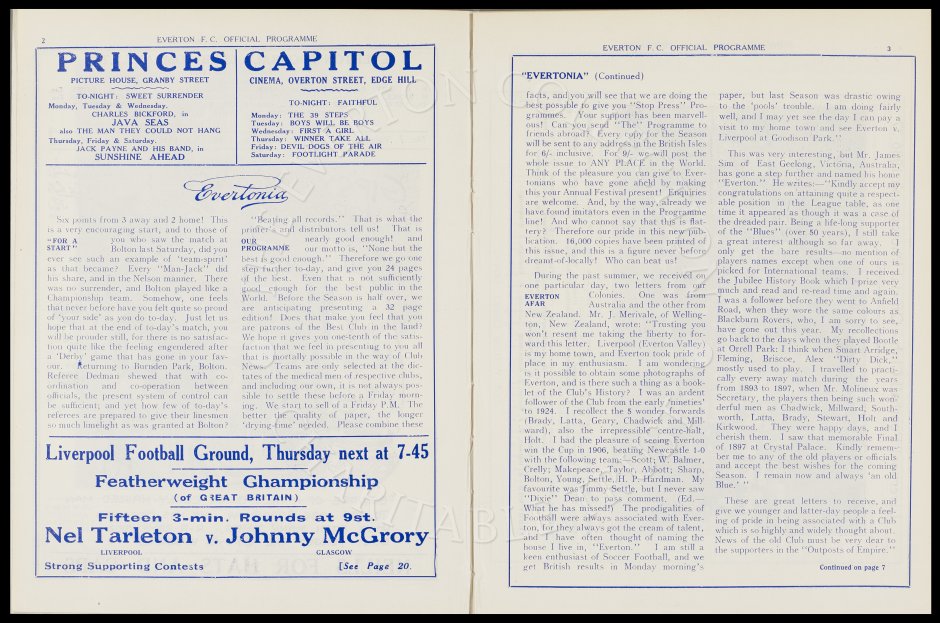 2
EVERTON F. C. OFFICIAL PROGRAMME
PRINCES
PICTURE HOUSE, GRANBY STREET
TO-NIGHT: SWEET SURRENDER
Monday, Tuesday & Wednesday.
CHARLES BICKFORD, in
JAVA SEAS
also THE MAN THEY COULD NOT HANG
Thursday, Friday & Saturday.
JACK PAYNE AND HIS BAND, in
SUNSHINE AHEAD
CAPITOL
CINEMA, OVERTON STREET, EDGE HILL
TO-NIGHT: FAITHFUL
Monday: THE 39 STEPS
Tuesday: BOYS WILL BE BOYS
Wednesday: FIRST A GIRL
Thursday: WINNER TAKE ALL
Friday: DEVIL DOGS OF THE AIR
Saturday: FOOTLIGHT PARADE
Evertonia
Six points from 3 away and 2 home! This
is a very encouraging start, and to those of
"FOR A START" you who saw the match at
Bolton last Saturday, did you
ever see such an example of 'team-spirit'
as that became? Every "Man-Jack" did
his share, and in the Nelson manner. There
was no surrender, and Bolton played like a
Championship team. Somehow, one feels
that never before have you felt quite so proud
of 'your side' as you do to-day. Just let us
hope that at the end of to-day's match, you
will be prouder still, for there is no satisfac-
tion quite like the feeling engendered after
a 'Derby' game that has gone in your fav-
our. Returning to Burnden Park, Bolton.
Referee Dedman shewed that with co-
ordination and co-operation between
officials, the present system of control can
be sufficient; and yet how few of to-day's
referees are prepared to give their linesmen
so much limelight as was granted at Bolton?
"Beating all records." That is what the
printer's and distributors tell us! That is
OUR PROGRAMME nearly good enough! and
our motto is, "None but the
best is good enough." Therefore we go one
step further to-day, and give you 24 pages
of the best. Even that is not sufficiently
good enough for the best public in the
World. Before the Season is half over, we
are anticipating presenting a 32 page
edition! Does that make you feel that you
are patrons of the Best Club in the land?
We hope it gives you one-tenth of the satis-
faction that we feel in presenting to you all
that is mortally possible in the way of Club
News. Teams are only selected at the dic-
tates of the medical men of respective clubs,
and including our own, it is not always pos-
sible to settle these before a Friday morn-
ing. We start to sell of a Friday P.M. The
better the quality of paper, the longer
'drying-time' needed. Please combine these
Liverpool Football Ground, Thursday next at 7-45
Featherweight Championship
(of GREAT BRITAIN)
Fifteen 3-min. Rounds at 9st.
Nel Tarleton v. Johnny McGrory
LIVERPOOL GLASGOW
Strong Supporting Contests [See Page 20.
EVERTON F. C. OFFICIAL PROGRAMME
3
"EVERTONIA" (Continued)
facts, and you will see that we are doing the
best possible to give you "Stop Press" Pro-
grammes. Your support has been marvell-
ous! Can you send "The" Programme to
friends abroad? Every copy for the Season
will be sent to any address in the British Isles
for 6/- inclusive. For 9/- we will post the
whole issue to ANY PLACE in the World.
Think of the pleasure you can give to Ever-
tonians who have gone afield by making
this your Annual Festival present! Enquiries
are welcome. And, by the way, already we
have found imitators even in the Programme
line! And who cannot say that this is flat-
tery? Therefore our pride in this new pub-
lication. 16,000 copies have been printed of
this issue, and this is a figure never before
dreamt-of-locally! Who can beat us!
During the past summer, we received on
one particular day, two letters from our
EVERTON AFAR Colonies. One was from
Australia and the other from
New Zealand. Mr. J. Merivale, of Welling-
ton, New Zealand, wrote: "Trusting you
won't resent me taking the liberty to for-
ward this letter. Liverpool (Everton Valley)
is my home town, and Everton took pride of
place in my enthusiasm. I am wondering
is it possible to obtain some photographs of
Everton, and is there such a thing as a book-
let of the Club's History? I was an ardent
follower of the Club from the early 'nineties'
to 1924. I recollect the 8 wonder forwards
(Brady, Latta, Geary, Chadwick and Mill-
ward), also the irrepressible centre-halt,
Holt. I had the pleasure of seeing Everton
win the Cup in 1906, beating Newcastle 1-0
with the following team:—Scott; W. Balmer,
Crelly; Makepeace, Taylor, Abbott; Sharp,
Bolton, Young, Settle, H. P. Hardman. My
favourite was Jimmy Settle, but I never saw
"Dixie" Dean to pass comment. (Ed.—
What he has missed!) The prodigalities of
Football were always associated with Ever-
ton, for they always got the cream of talent,
and I have often thought of naming the
house I live in, "Everton." I am still a
keen enthusiast of Soccer Football, and we
get British results in Monday morning's
paper, but last Season was drastic owing
to the 'pools' trouble. I am doing fairly
well, and I may yet see the day I can pay a
visit to my home town and see Everton v.
Liverpool at Goodison Park."
This was very interesting, but Mr. James
Sim of East Geelong, Victoria, Australia,
has gone a step further and named his home
"Everton." He writes:—"Kindly accept my
congratulations on attaining quite a respect-
able position in the League table, as one
time it appeared as though it was a case of
the dreaded pair. Being a life-long supporter
of the "Blues" (over 50 years), I still take
a great interest although so far away. I
only get the bare results—no mention of
players names except when one of ours is
picked for International teams. I received
the Jubilee History Book which I prize very
much and read and re-read time and again.
I was a follower before they went to Anfield
Road, when they wore the same colours as
Blackburn Rovers, who, I am sorry to see,
have gone out this year. My recollections
go back to the days when they played Bootle
at Orrell Park; I think when Smart Arridge,
Fleming, Briscoe, Alex "Dirty Dick,"
mostly used to play. I travelled to practi-
cally every away match during the years
from 1893 to 1897, when Mr. Molineux was
Secretary, the players then being such won-
derful men as Chadwick, Millward, South-
worth, Latta, Brady, Stewart, Holt and
Kirkwood. They were happy days, and I
cherish them. I saw that memorable Final
of 1897 at Crystal Palace. Kindly remem-
ber me to any of the old players or officials
and accept the best wishes for the coming
Season. I remain now and always 'an old
Blue.' "
These are great letters to receive, and
give we younger and latter-day people a feel-
ing of pride in being associated with a Club
which is so highly and widely thought about.
News of the old Club must be very dear to
the supporters in the "Outposts of Empire."
Continued on page 7